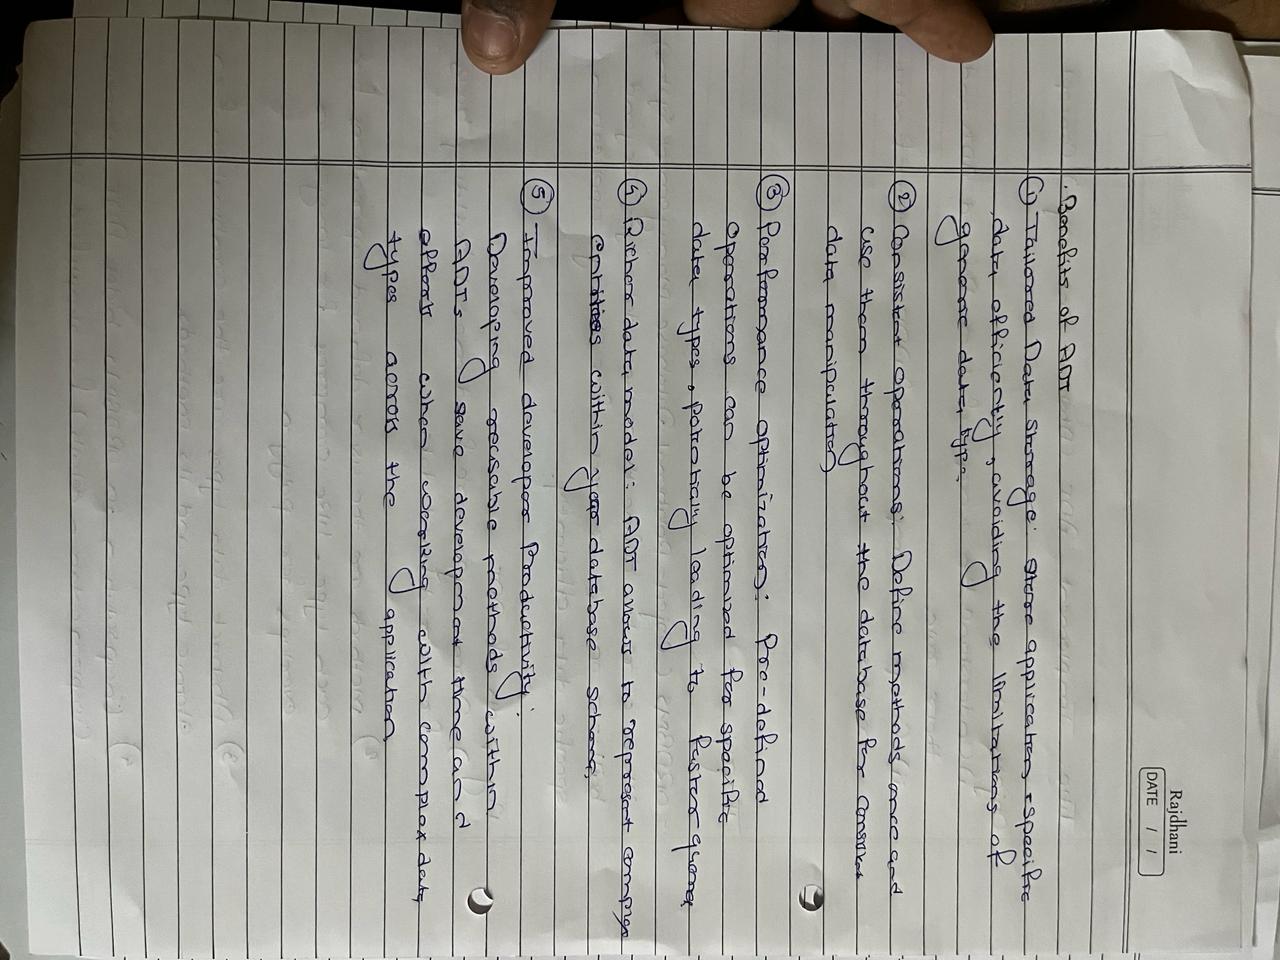 Rajdhani
DATE / /
. Benefits of ADT
① Tailored Data storage: store application-specific
data efficiently, avoiding the limitations of
generic data type.
② Consistent operations: Define methods once and
use them throughout the database for consistent
data manipulation
③ Performance optimization: Pre-defined
operations can be optimized for specific
data types, potentially leading to faster queries
④ Richer data model: ADT allows to represent complex
entities within your database schema,
⑤ Improved developer Productivity:
Developing reusable methods within
ADTs save development time and
effort when working with complex data
types across the application